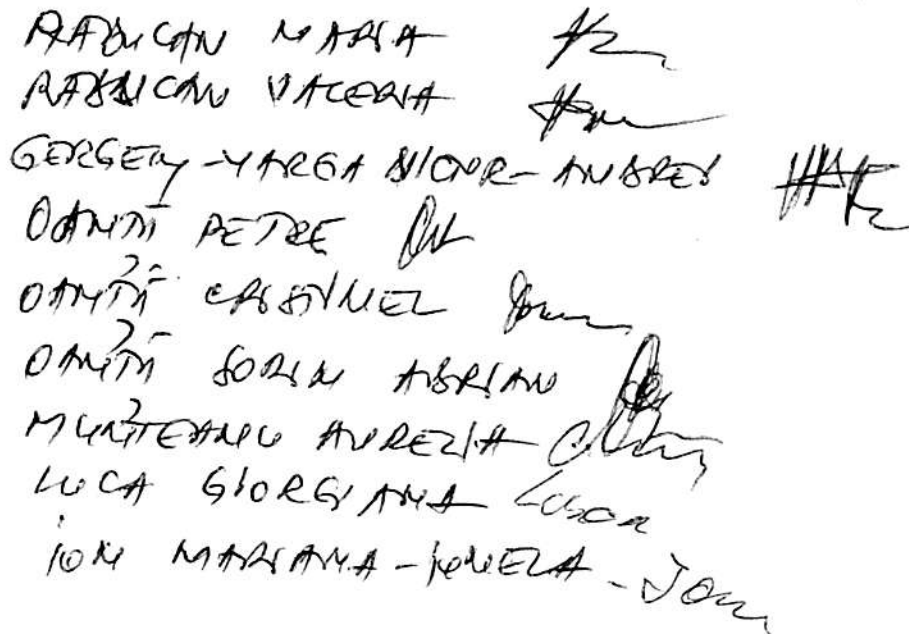 RADUCAN MARIA
RADUCAN VALERIA
GERGELY-VARGA VICTOR-ANDREI
OANȚĂ PETRE
OANȚĂ CRISTINEL
OANȚĂ SORIN ADRIAN
MUNTEANU AURELIA
LUCA GIORGIANA Luca
ION MARIANA-IONELA - Ion